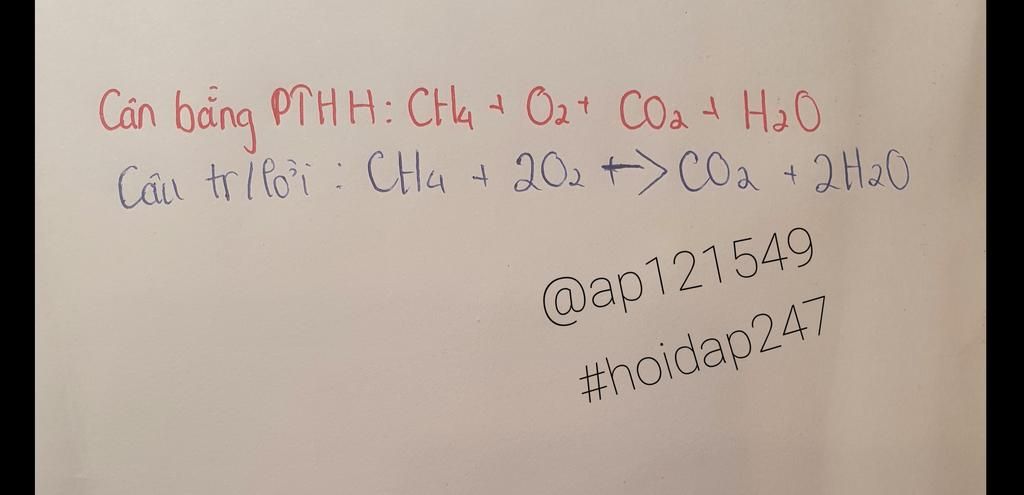 Cân bằng PTHH: CH4 + O2 + CO2 + H2O
Câu tr/lời : CH4 + 2O2 +-> CO2 + 2H2O
@ap121549
#hoidap247